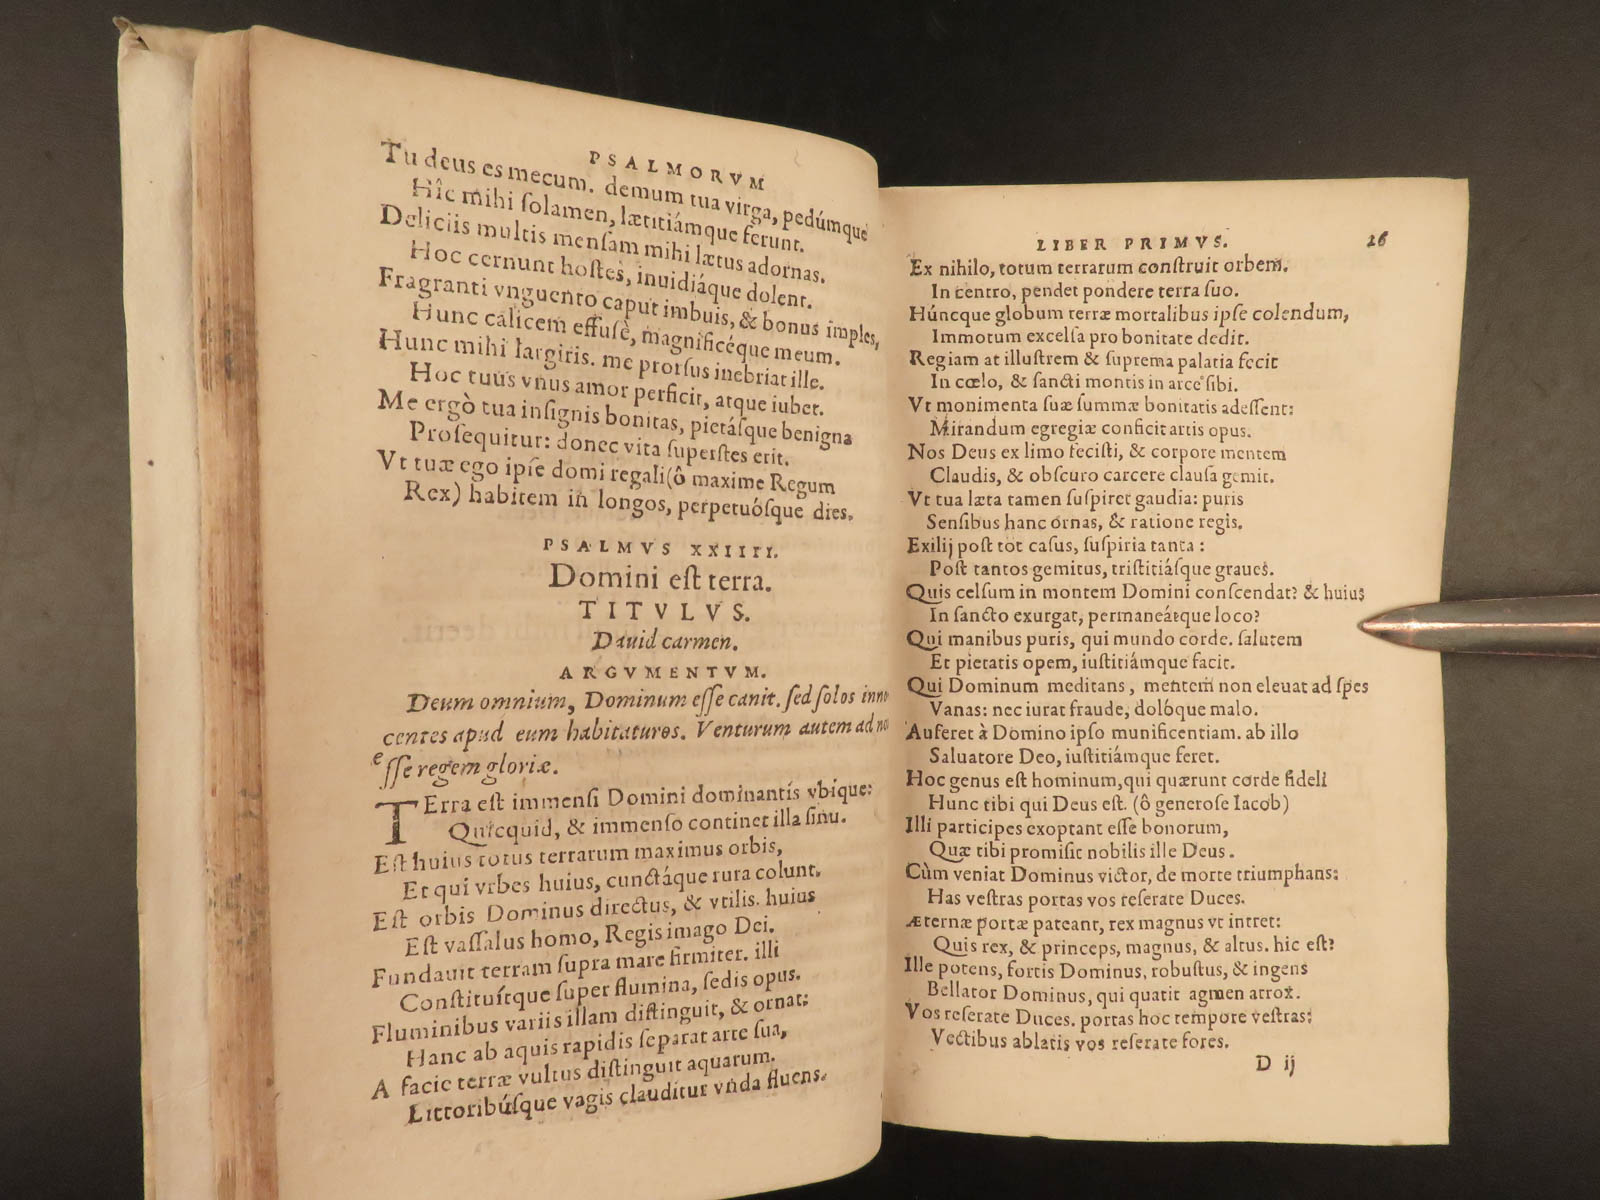 PSALMORVM
Tu deus es mecum. demum tua virga, pedúmque
Hîc mihi ſolamen, lætitiámque ferunt.
Deliciis multis menſam mihi lætus adornas.
Hoc cernunt hoſtes, inuidiáque dolent.
Fragranti vnguento caput imbuis, & bonus imples,
Hunc calicem effuſè, magnificéque meum.
Hunc mihi largiris. me prorſus inebriat ille.
Hoc tuus vnus amor perficit, atque iubet.
Me ergò tua inſignis bonitas, pietáſque benigna
Proſequitur: donec vita ſuperſtes erit.
Vt tuæ ego ipſe domi regali(ô maxime Regum
Rex) habitem in longos, perpetuóſque dies.
PSALMVS XXIIII.
Domini eſt terra.
TITVLVS.
Dauid carmen.
ARGVMENTVM.
Deum omnium, Dominum eſſe canit. ſed ſolos inno
centes apud eum habitaturos. Venturum autem ad no
eſſe regem gloriæ.
TErra eſt immenſi Domini dominantis vbique:
Quicquid, & immenſo continet illa ſinu.
Eſt huius totus terrarum maximus orbis,
Et qui vrbes huius, cunctáque rura colunt.
Eſt orbis Dominus directus, & vtilis. huius
Eſt vaſſalus homo, Regis imago Dei.
Fundauit terram ſupra mare firmiter. illi
Conſtituítque ſuper flumina, ſedis opus.
Fluminibus variis illam diſtinguit, & ornat:
Hanc ab aquis rapidis ſeparat arte ſua,
A facie terræ vultus diſtinguit aquarum.
Littoribúſque vagis clauditur vnda fluens.
LIBER PRIMVS. 26
Ex nihilo, totum terrarum conſtruit orbem.
In centro, pendet pondere terra ſuo.
Húncque globum terræ mortalibus ipſe colendum,
Immotum excelſa pro bonitate dedit.
Regiam at illuſtrem & ſuprema palatia fecit
In cœlo, & ſancti montis in arce ſibi.
Vt monimenta ſuæ ſummæ bonitatis adeſſent:
Mirandum egregiæ conficit artis opus.
Nos Deus ex limo feciſti, & corpore mentem
Claudis, & obſcuro carcere clauſa gemit.
Vt tua læta tamen ſuſpiret gaudia: puris
Senſibus hanc ornas, & ratione regis.
Exilij poſt tot caſus, ſuſpiria tanta:
Poſt tantos gemitus, triſtitiáſque graues.
Quis celſum in montem Domini conſcendat? & huius
In ſancto exurgat, permaneátque loco?
Qui manibus puris, qui mundo corde. ſalutem
Et pietatis opem, iuſtitiámque facit.
Qui Dominum meditans, mentem non eleuat ad ſpes
Vanas: nec iurat fraude, dolóque malo.
Auferet à Domino ipſo munificentiam. ab illo
Saluatore Deo, iuſtitiámque feret.
Hoc genus eſt hominum, qui quærunt corde fideli
Hunc tibi qui Deus eſt. (ô generoſe Iacob)
Illi participes exoptant eſſe bonorum,
Quæ tibi promiſit nobilis ille Deus.
Cùm veniat Dominus victor, de morte triumphans:
Has veſtras portas vos reſerate Duces.
Æternæ portæ pateant, rex magnus vt intret:
Quis rex, & princeps, magnus, & altus. hic eſt?
Ille potens, fortis Dominus, robuſtus, & ingens
Bellator Dominus, qui quatit agmen atrox.
Vos reſerate Duces. portas hoc tempore veſtras:
Vectibus ablatis vos reſerate fores.
D ij